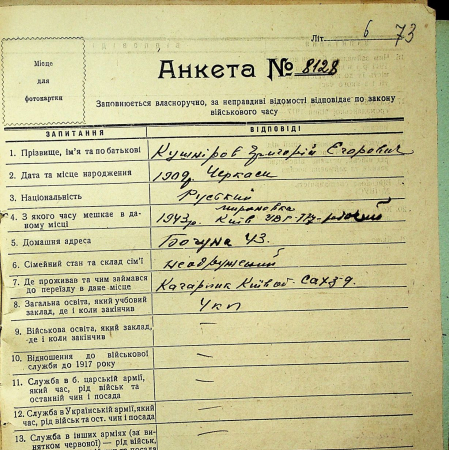 Літ. 6 73
Місце
для
фотокартки
Анкета № 8128
Заповнюється власноручно, за неправдиві відомості відповідає по закону
військового часу
ЗАПИТАННЯ ВІДПОВІДІ
1. Прізвище, ім'я та по батькові Кушніров Григорій Єгорович
2. Дата та місце народження 1909р. Черкаси
3. Національність Руський
4. З якого часу мешкає в да- мироновка
ному місці 1943р. Київ
5. Домашня адреса 43.
6. Сімейний стан та склад сім'ї неодружений
7. Де проживав та чим займався
до переїзду в дане місце Кагарлик Київ
8. Загальна освіта, який учбовий
заклад, де і коли закінчив 4 кл
9. Військова освіта, який заклад, —
де і коли закінчив
10. Відношення до військової
служби до 1917 року —
11. Служба в б. царській армії,
який час, рід військ та —
останній чин і посада
12. Служба в Українській армії, який
час, рід військ та ост. чин і посада —
13. Служба в інших арміях (за ви-
нятком червоної) — рід військ, —